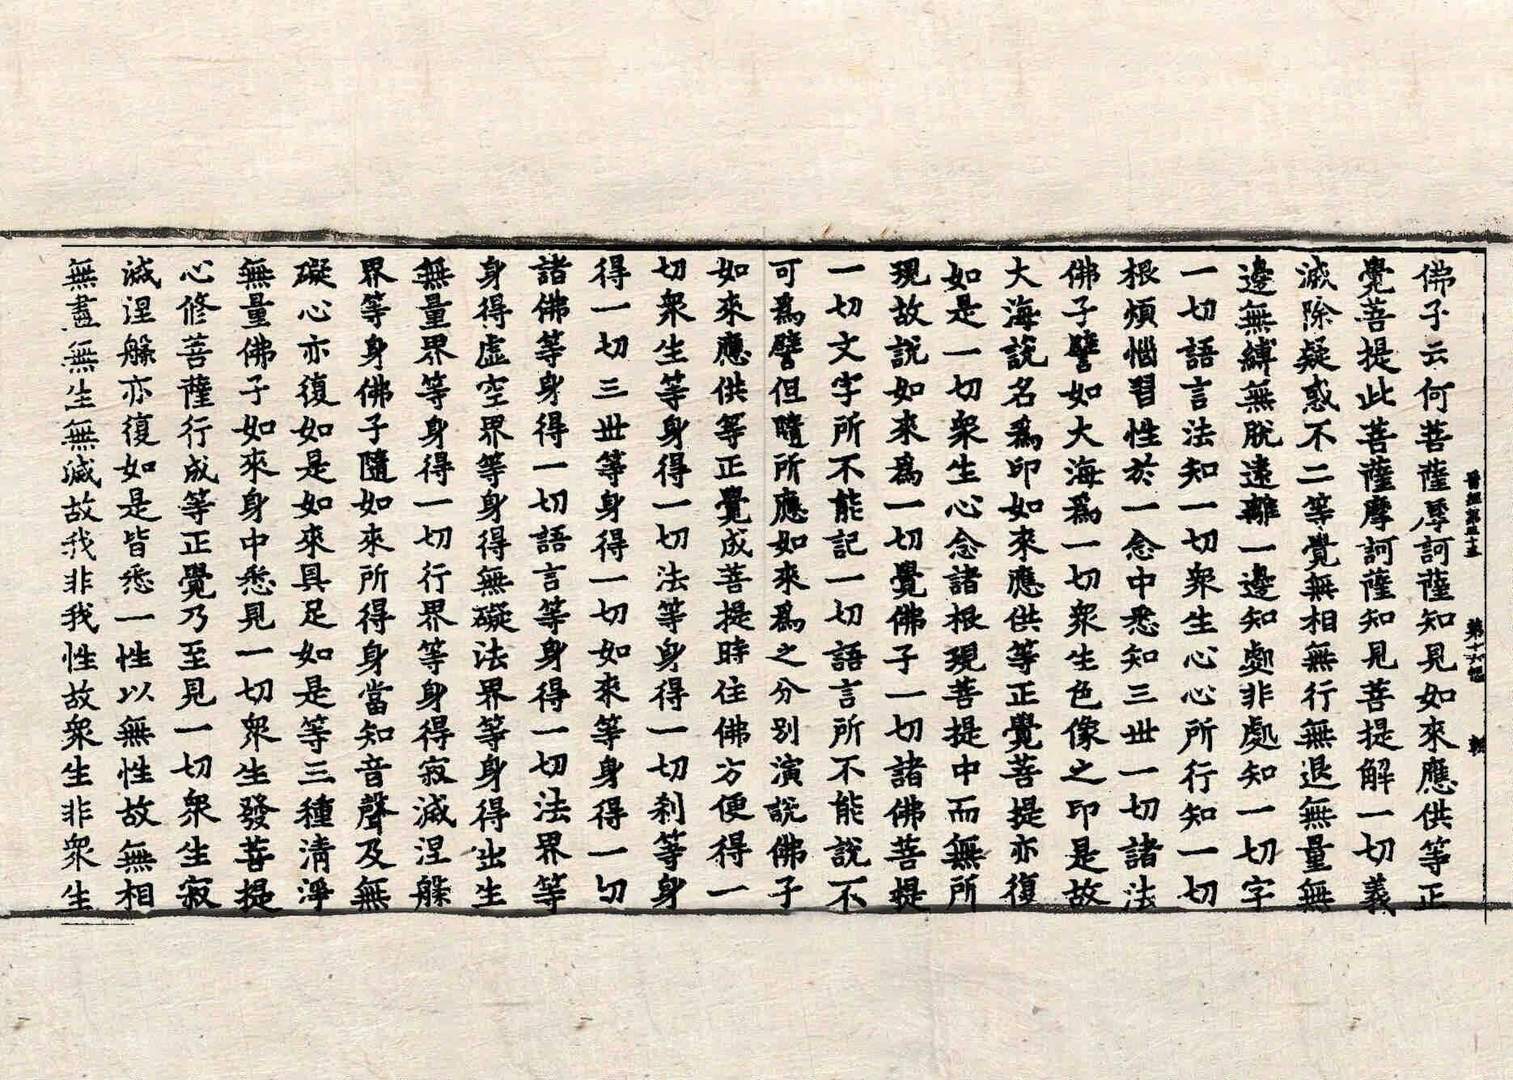 晉經第三十五　第十六張　朝
佛子云何菩薩摩訶薩知見如來應供等正
覺菩提此菩薩摩訶薩知見菩提解一切義
滅除疑惑不二等覺無相無行無退無量無
邊無縛無脫遠離一邊知處非處知一切字
一切語言法知一切衆生心心所行知一切
根煩惱習性於一念中悉知三世一切諸法
佛子譬如大海爲一切衆生色像之印是故
大海說名爲印如來應供等正覺菩提亦復
如是一切衆生心念諸根現菩提中而無所
現故說如來爲一切覺佛子一切諸佛菩提
一切文字所不能記一切語言所不能說不
可爲譬但隨所應如來爲之分別演説佛子
如來應供等正覺成菩提時住佛方便得一
切衆生等身得一切法等身得一切刹等身
得一切三世等身得一切如來等身得一切
諸佛等身得一切語言等身得一切法界等
身得虛空界等身得無礙法界等身得出生
無量界等身得一切行界等身得寂滅涅槃
界等身佛子隨如來所得身當知音聲及無
礙心亦復如是如來具足如是等三種清淨
無量佛子如來身中悉見一切衆生發菩提
心修菩薩行成等正覺乃至見一切衆生寂
滅涅槃亦復如是皆悉一性以無性故無相
無盡無生無滅故我非我性故衆生非衆生